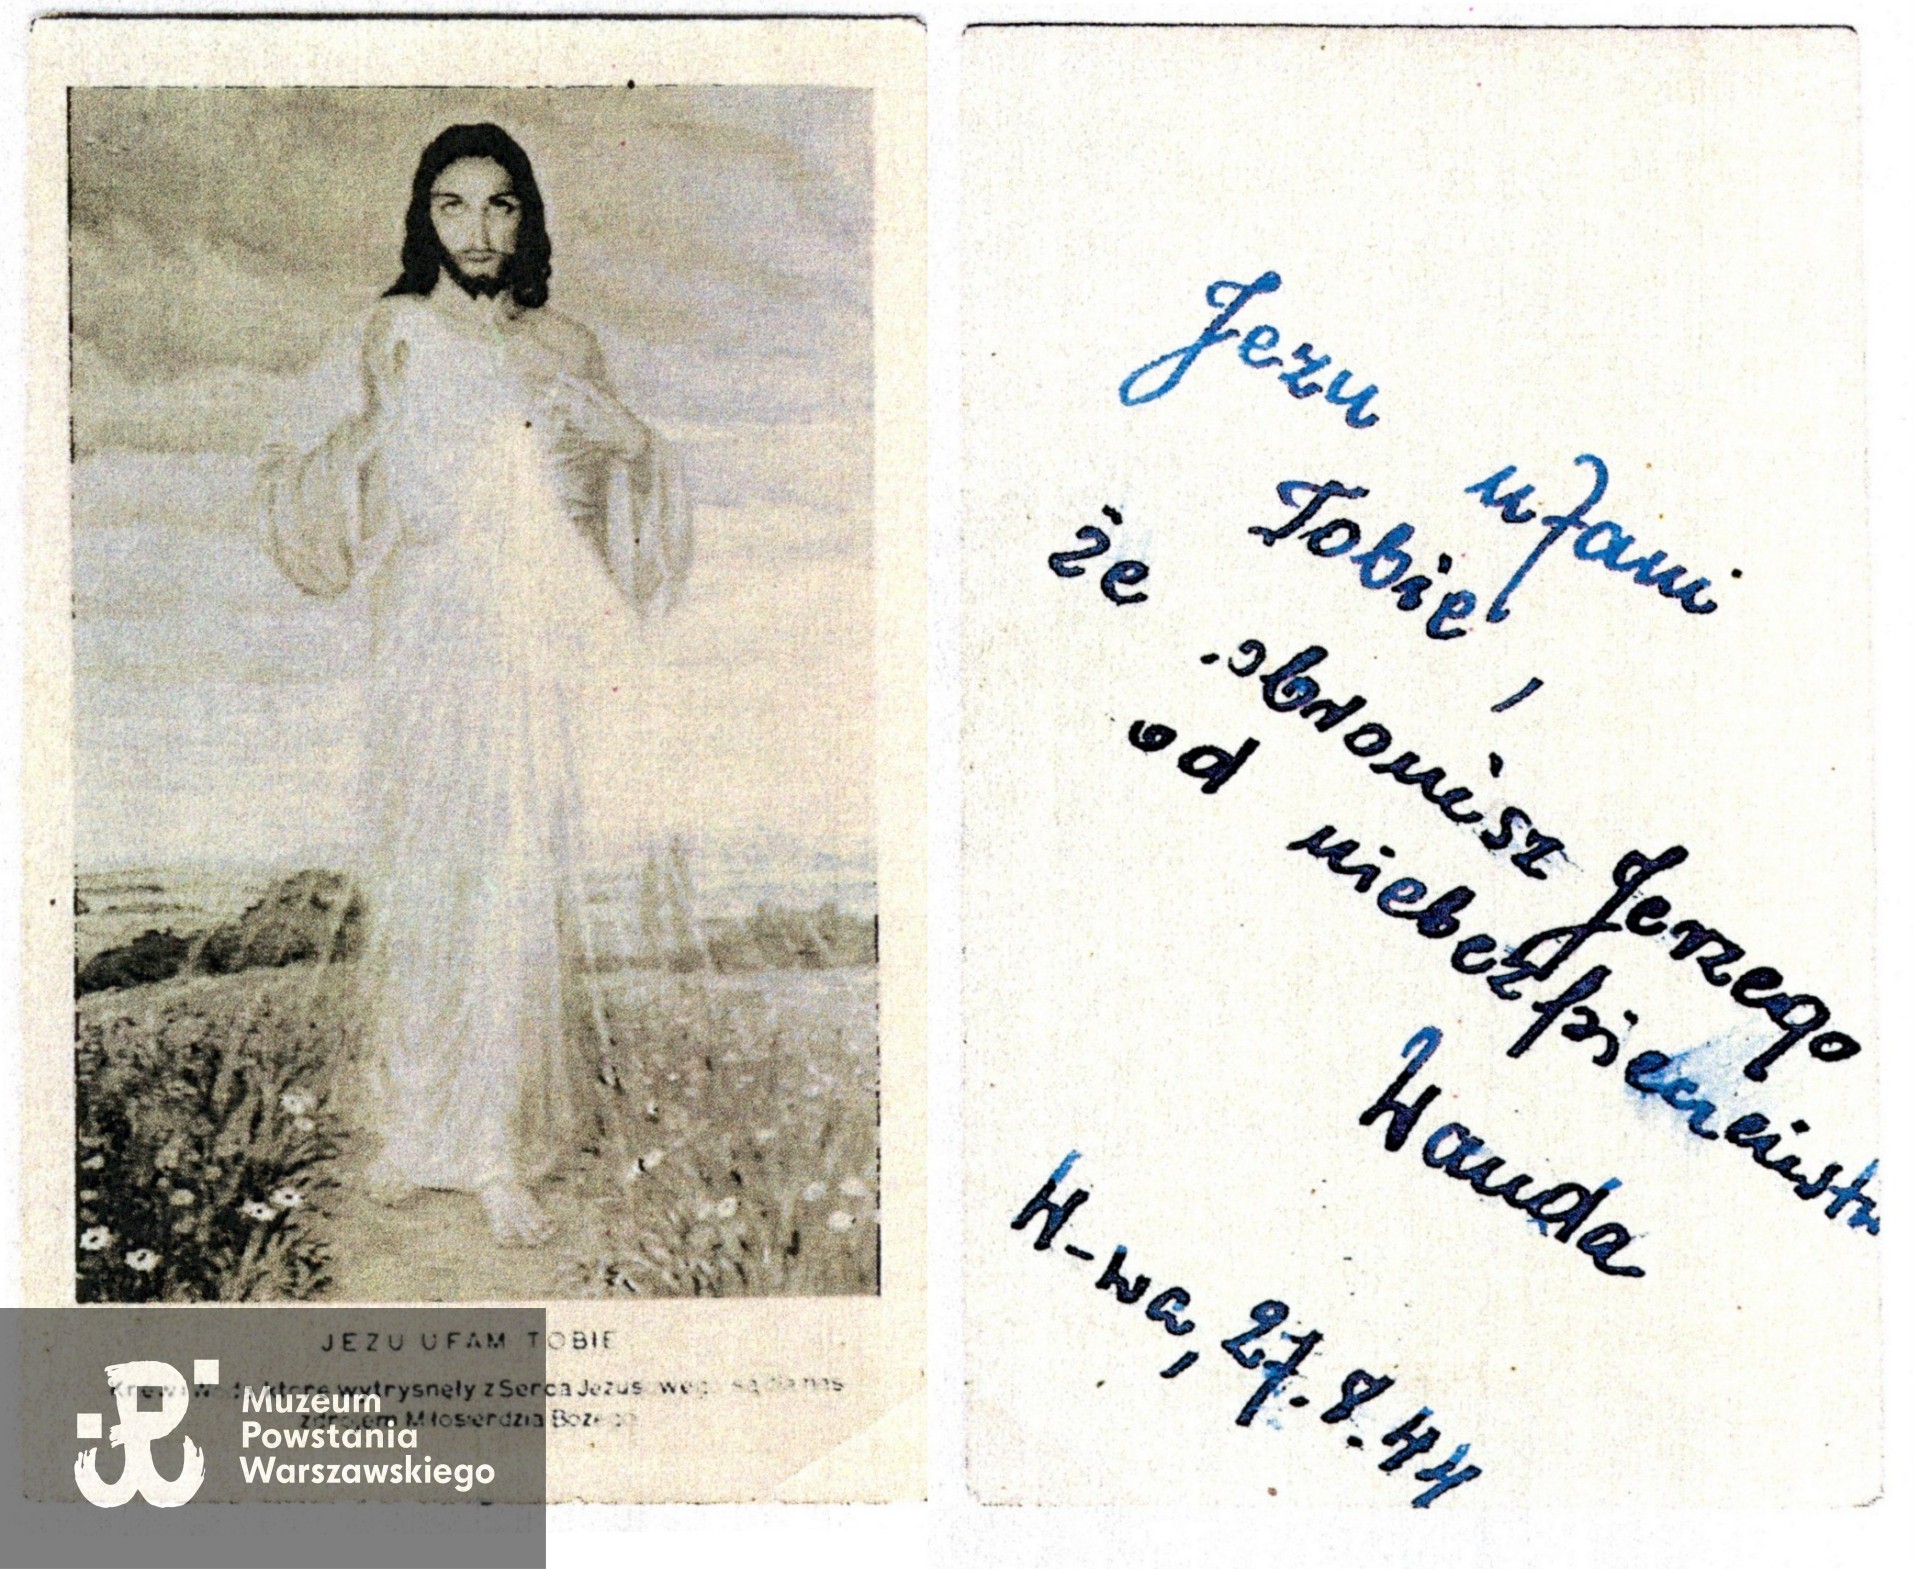 JEZU UFAM TOBIE
Krew i Woda, które wytrysnęły z Serca Jezusowego są dla nas
zdrojem Miłosierdzia Bożego
Muzeum
Powstania
Warszawskiego
Jezu ufam
Tobie,
że obronisz Jerzego
od niebezpieczeństw
Wanda
W-wa, 27.8.44